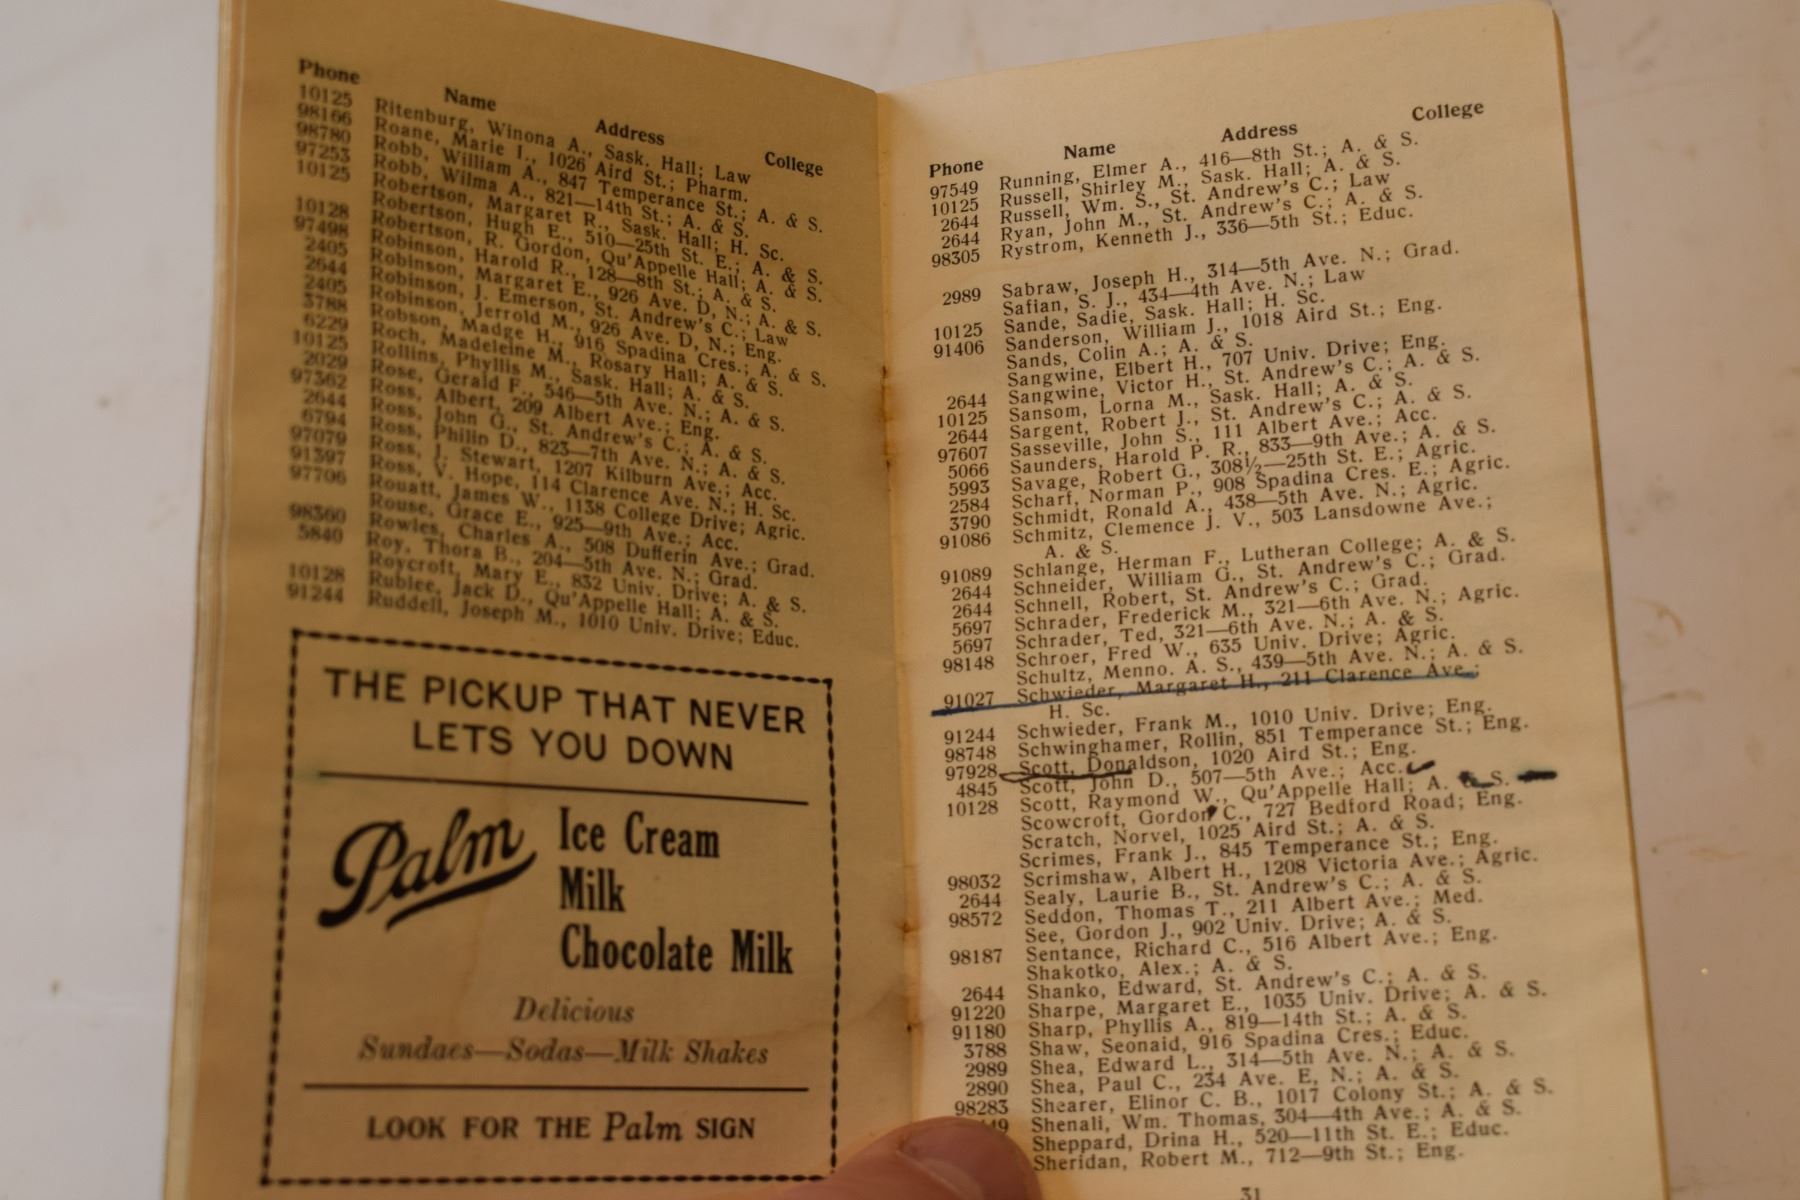 Phone Name Address College
10125 Ritenburg, Winona A., Sask. Hall; Law
98166 Roane, Marie I., 1026 Aird St.; Pharm.
98780 Robb, William A., 847 Temperance St.; A. & S.
97253 Robb, Wilma A., 821—14th St.; A. & S.
10125 Robertson, Margaret R., Sask. Hall; H. Sc.
Robertson, Hugh E., 510—25th St. E.; A. & S.
10128 Robertson, R. Gordon, Qu'Appelle Hall; A. & S.
97498 Robinson, Harold R., 128—8th St.; A. & S.
2405 Robinson, Margaret E., 926 Ave. D, N.; A. & S.
2644 Robinson, J. Emerson, St. Andrew's C.; Law
2405 Robinson, Jerrold M., 926 Ave. D, N.; Eng.
3788 Robson, Madge H., 916 Spadina Cres.; A. & S.
6229 Roch, Madeleine M., Rosary Hall; A. & S.
10125 Rollins, Phyllis M., Sask. Hall; A. & S.
2029 Rose, Gerald F., 546—5th Ave. N.; A. & S.
97362 Ross, Albert, 209 Albert Ave.; Eng.
2644 Ross, John G., St. Andrew's C.; A. & S.
6794 Ross, Philip D., 823—7th Ave. N.; A. & S.
97079 Ross, J. Stewart, 1207 Kilburn Ave.; Acc.
91397 Ross, V. Hope, 114 Clarence Ave. N.; H. Sc.
97706 Rouatt, James W., 1138 College Drive; Agric.
Rouse, Grace E., 925—9th Ave.; Acc.
98360 Rowles, Charles A., 508 Dufferin Ave.; Grad.
5840 Roy, Thora B., 204—5th Ave. N.; Grad.
Roycroft, Mary E., 832 Univ. Drive; A. & S.
10128 Rublee, Jack D., Qu'Appelle Hall; A. & S.
91244 Ruddell, Joseph M., 1010 Univ. Drive; Educ.
THE PICKUP THAT NEVER
LETS YOU DOWN
Palm
Ice Cream
Milk
Chocolate Milk
Delicious
Sundaes—Sodas—Milk Shakes
LOOK FOR THE Palm SIGN
Phone Name Address College
97549 Running, Elmer A., 416—8th St.; A. & S.
10125 Russell, Shirley M., Sask. Hall; A. & S.
2644 Russell, Wm. S., St. Andrew's C.; Law
2644 Ryan, John M., St. Andrew's C.; A. & S.
98305 Rystrom, Kenneth J., 336—5th St.; Educ.
2989 Sabraw, Joseph H., 314—5th Ave. N.; Grad.
Safian, S. J., 434—4th Ave. N.; Law
10125 Sande, Sadie, Sask. Hall; H. Sc.
91406 Sanderson, William J., 1018 Aird St.; Eng.
Sands, Colin A.; A. & S.
Sangwine, Elbert H., 707 Univ. Drive; Eng.
2644 Sangwine, Victor H., St. Andrew's C.; A. & S.
10125 Sansom, Lorna M., Sask. Hall; A. & S.
2644 Sargent, Robert J., St. Andrew's C.; A. & S.
97607 Sasseville, John S., 111 Albert Ave.; Acc.
5066 Saunders, Harold P. R., 833—9th Ave.; A. & S.
5993 Savage, Robert G., 308½—25th St. E.; Agric.
2584 Scharf, Norman P., 908 Spadina Cres. E.; Agric.
3790 Schmidt, Ronald A., 438—5th Ave. N.; Agric.
91086 Schmitz, Clemence J. V., 503 Lansdowne Ave.;
A. & S.
91089 Schlange, Herman F., Lutheran College; A. & S.
2644 Schneider, William G., St. Andrew's C.; Grad.
2644 Schnell, Robert, St. Andrew's C.; Grad.
5697 Schrader, Frederick M., 321—6th Ave. N.; Agric.
5697 Schrader, Ted, 321—6th Ave. N.; A. & S.
98148 Schroer, Fred W., 635 Univ. Drive; Agric.
Schultz, Menno. A. S., 439—5th Ave. N.; A. & S.
91027 Schwieder, Margaret H., 211 Clarence Ave.;
H. Sc.
91244 Schwieder, Frank M., 1010 Univ. Drive; Eng.
98748 Schwinghamer, Rollin, 851 Temperance St.; Eng.
97928 Scott, Donaldson, 1020 Aird St.; Eng.
4845 Scott, John D., 507—5th Ave.; Acc.
10128 Scott, Raymond W., Qu'Appelle Hall; A. & S.
Scowcroft, Gordon C., 727 Bedford Road; Eng.
Scratch, Norvel, 1025 Aird St.; A. & S.
Scrimes, Frank J., 845 Temperance St.; Eng.
98032 Scrimshaw, Albert H., 1208 Victoria Ave.; Agric.
2644 Sealy, Laurie B., St. Andrew's C.; A. & S.
98572 Seddon, Thomas T., 211 Albert Ave.; Med.
See, Gordon J., 902 Univ. Drive; A. & S.
98187 Sentance, Richard C., 516 Albert Ave.; Eng.
Shakotko, Alex.; A. & S.
2644 Shanko, Edward, St. Andrew's C.; A. & S.
91220 Sharpe, Margaret E., 1035 Univ. Drive; A. & S.
91180 Sharp, Phyllis A., 819—14th St.; A. & S.
3788 Shaw, Seonaid, 916 Spadina Cres.; Educ.
2989 Shea, Edward L., 314—5th Ave. N.; A. & S.
2890 Shea, Paul C., 234 Ave. E, N.; A. & S.
98283 Shearer, Elinor C. B., 1017 Colony St.; A. & S.
49 Shenali, Wm. Thomas, 304—4th Ave.; A. & S.
Sheppard, Drina H., 520—11th St. E.; Educ.
Sheridan, Robert M., 712—9th St.; Eng.
31